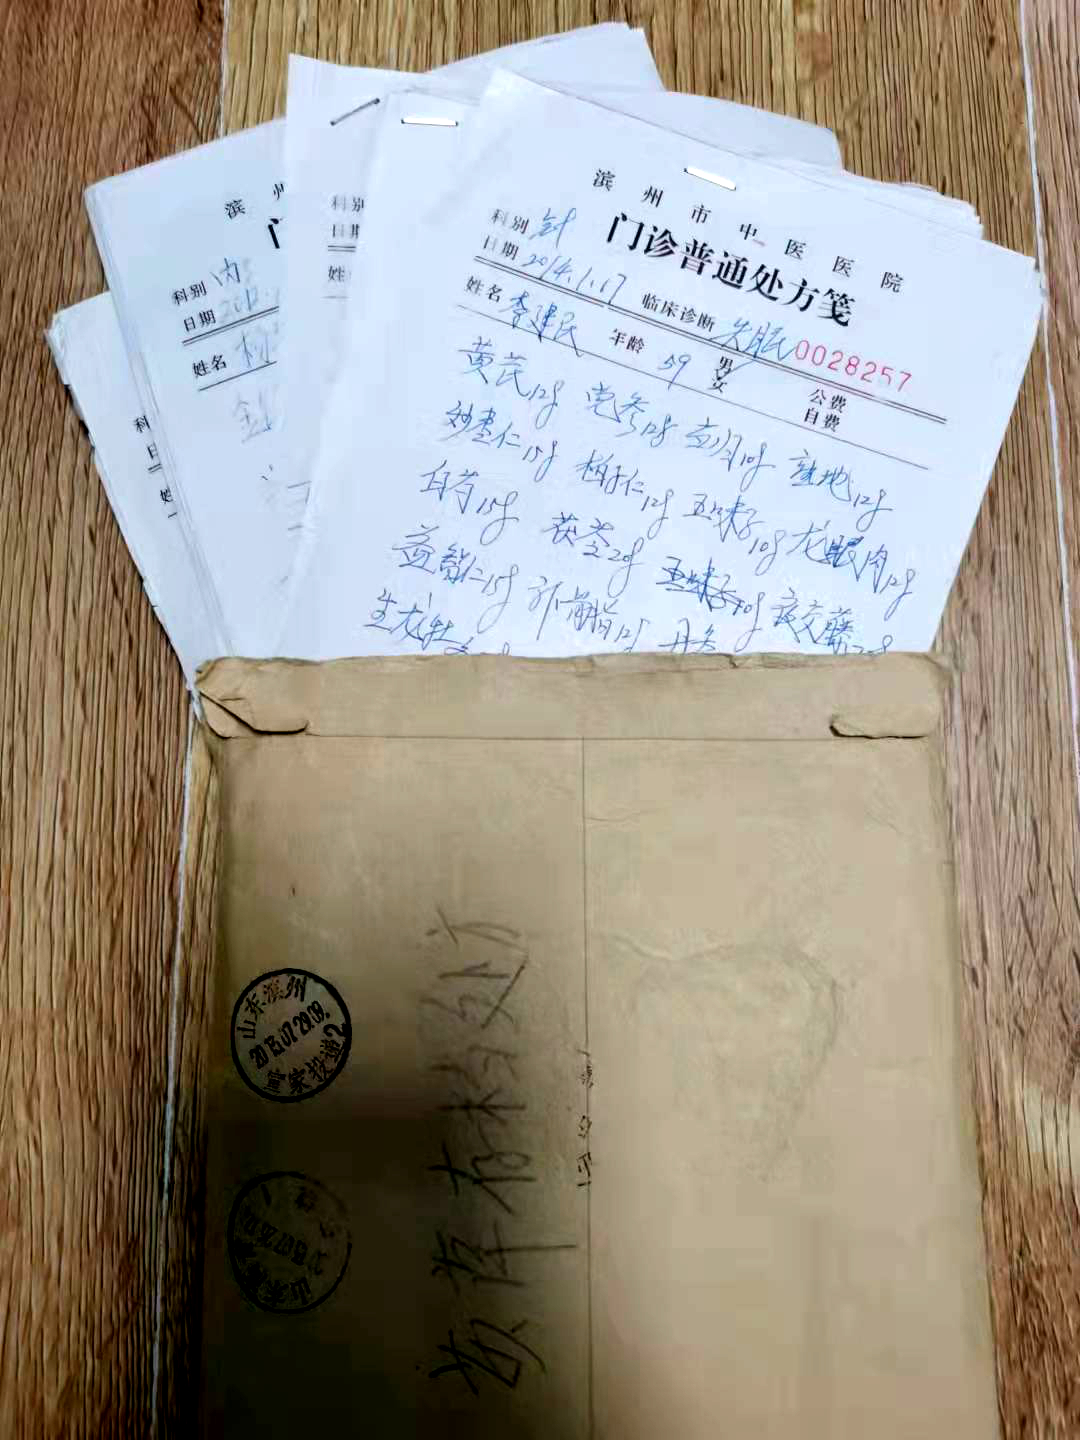 滨州市中医医院
门诊普通处方笺
科别 针
日期 2014.1.17 临床诊断 失眠 0028257
姓名 李建民 年龄 59 男 女 公费 自费
黄芪12g 党参12g 12g
炒枣仁15g 柏子仁12g 五味子10g 龙眼肉12g
白芍15g 茯苓20g 五味子10g 夜交藤20g
益智仁15g 12g 丹参
生龙牡各
科别
日期
姓名
滨州
门
科别 内
日期 2012.
姓名
科
日
姓
处方
山东滨州
2013.07.29.09.
投递2